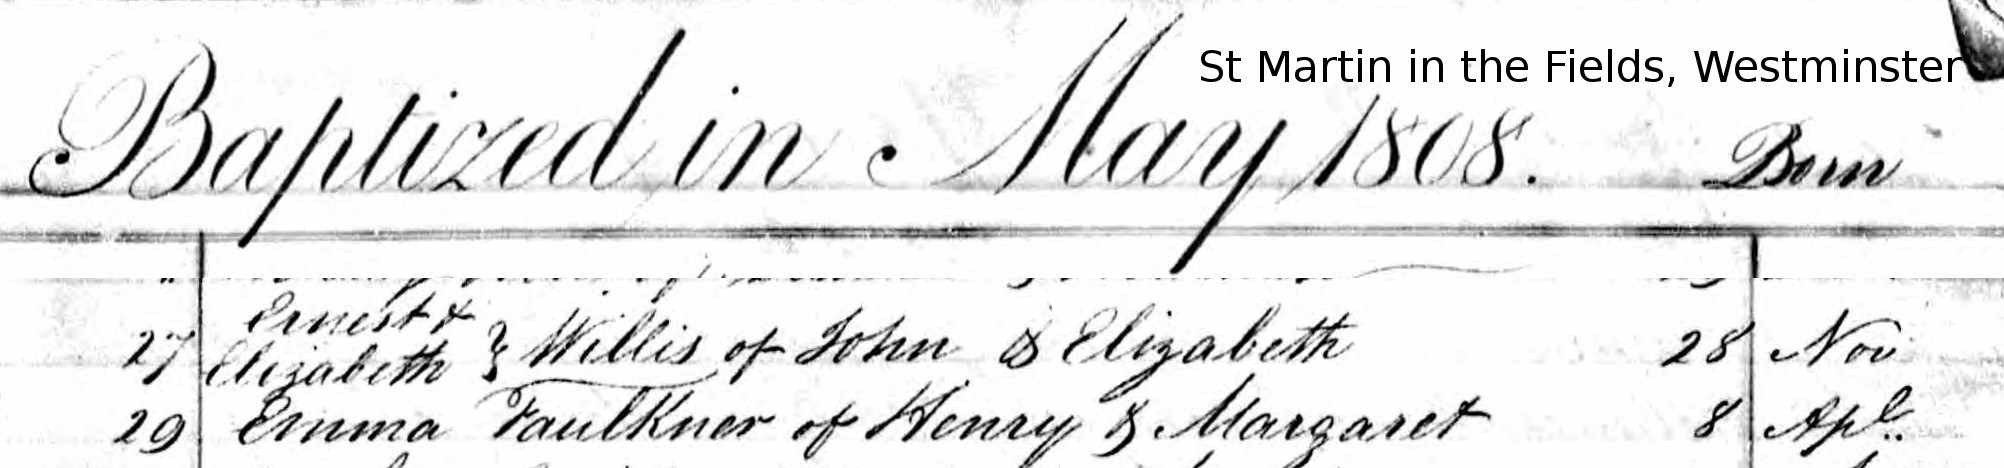 St Martin in the Fields, Westminster
Baptized in May 1808. Born
27 Ernest & Elizabeth } Willis of John & Elizabeth 28 Nov
29 Emma Faulkner of Henry & Margaret 8 Apl.